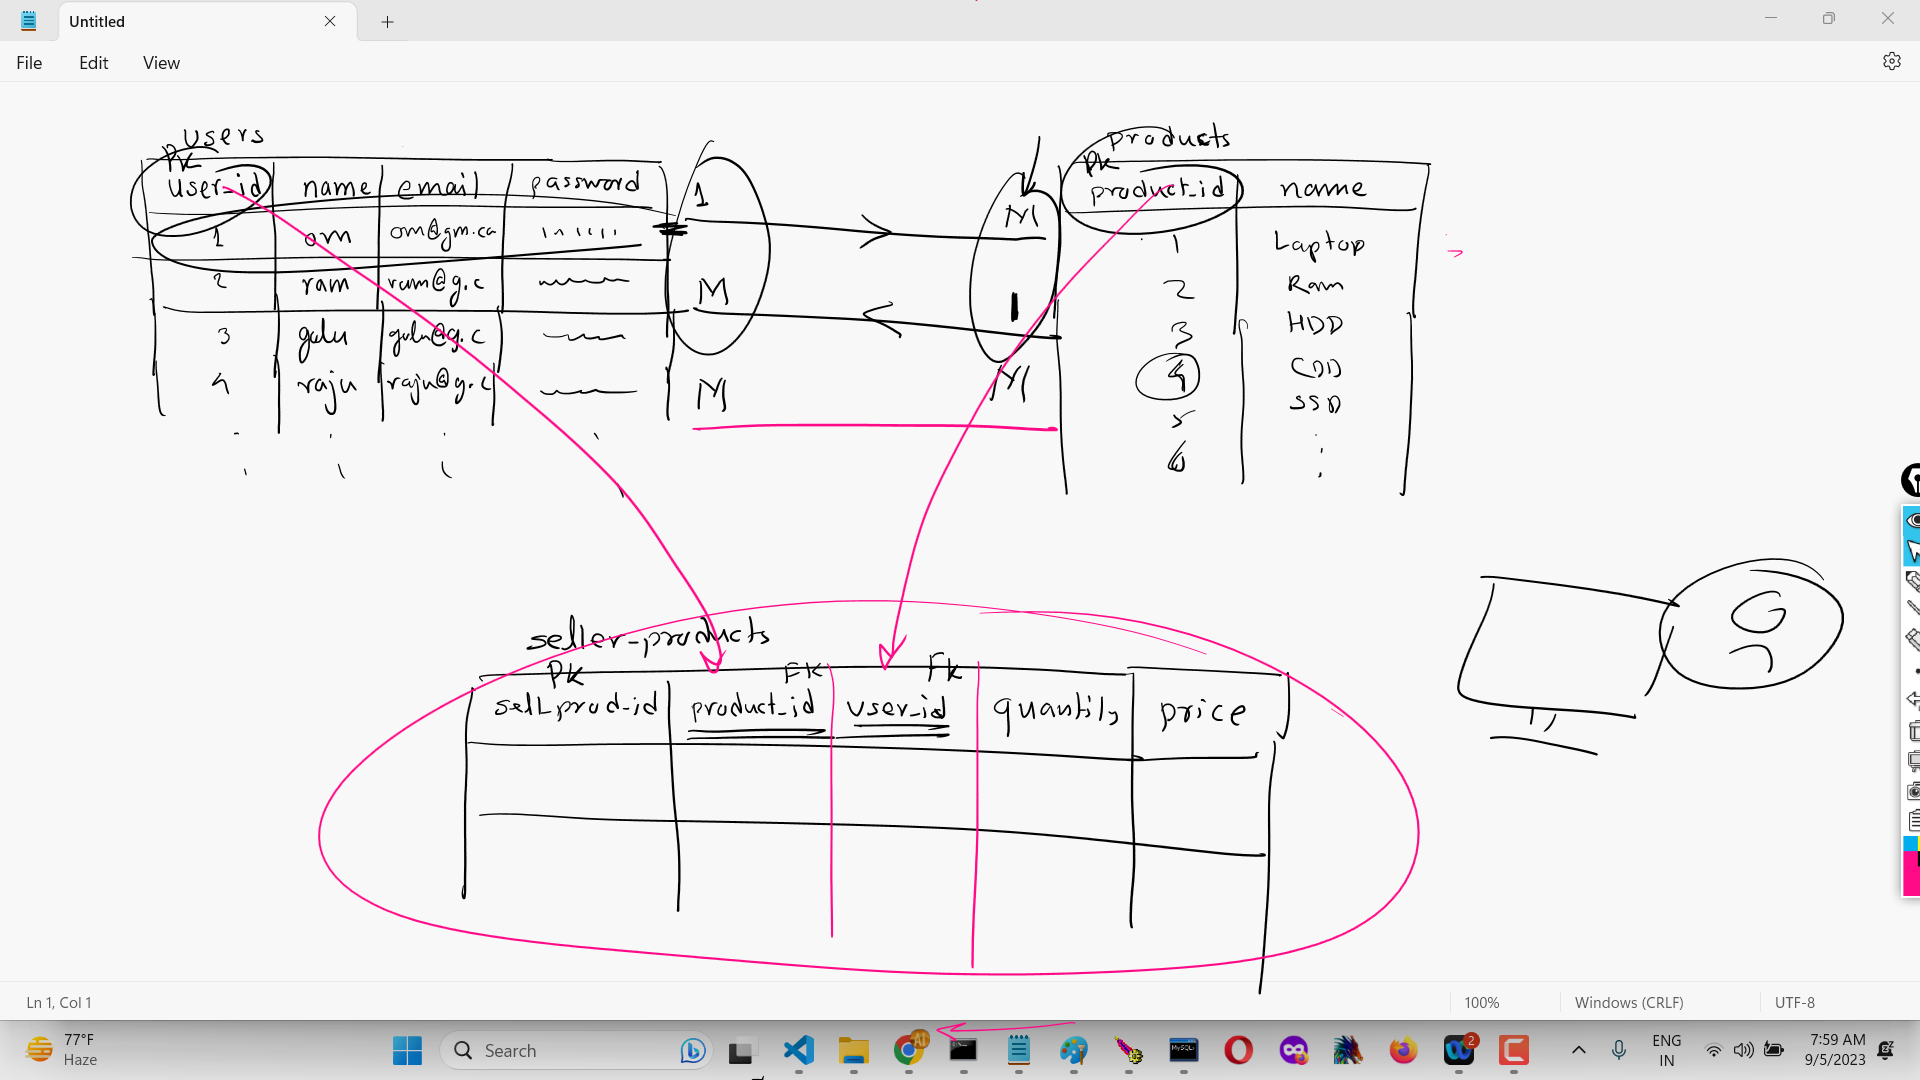 Untitled
File Edit View
users
PK
user_id name email password
1 om om@gm.ca
2 ram ram@g.c
3 golu golu@g.c
4 raju raju@g.c
1 M
M 1
M M
products
PK
product_id name
1 Laptop
2 Ram
3 HDD
4 CDD
5 SSD
6
seller-products
PK FK FK
sell_prod-id product_id user_id quantity price
Ln 1, Col 1 100% Windows (CRLF) UTF-8
77°F
Haze
Search
MySQL
2
ENG
IN
7:59 AM
9/5/2023